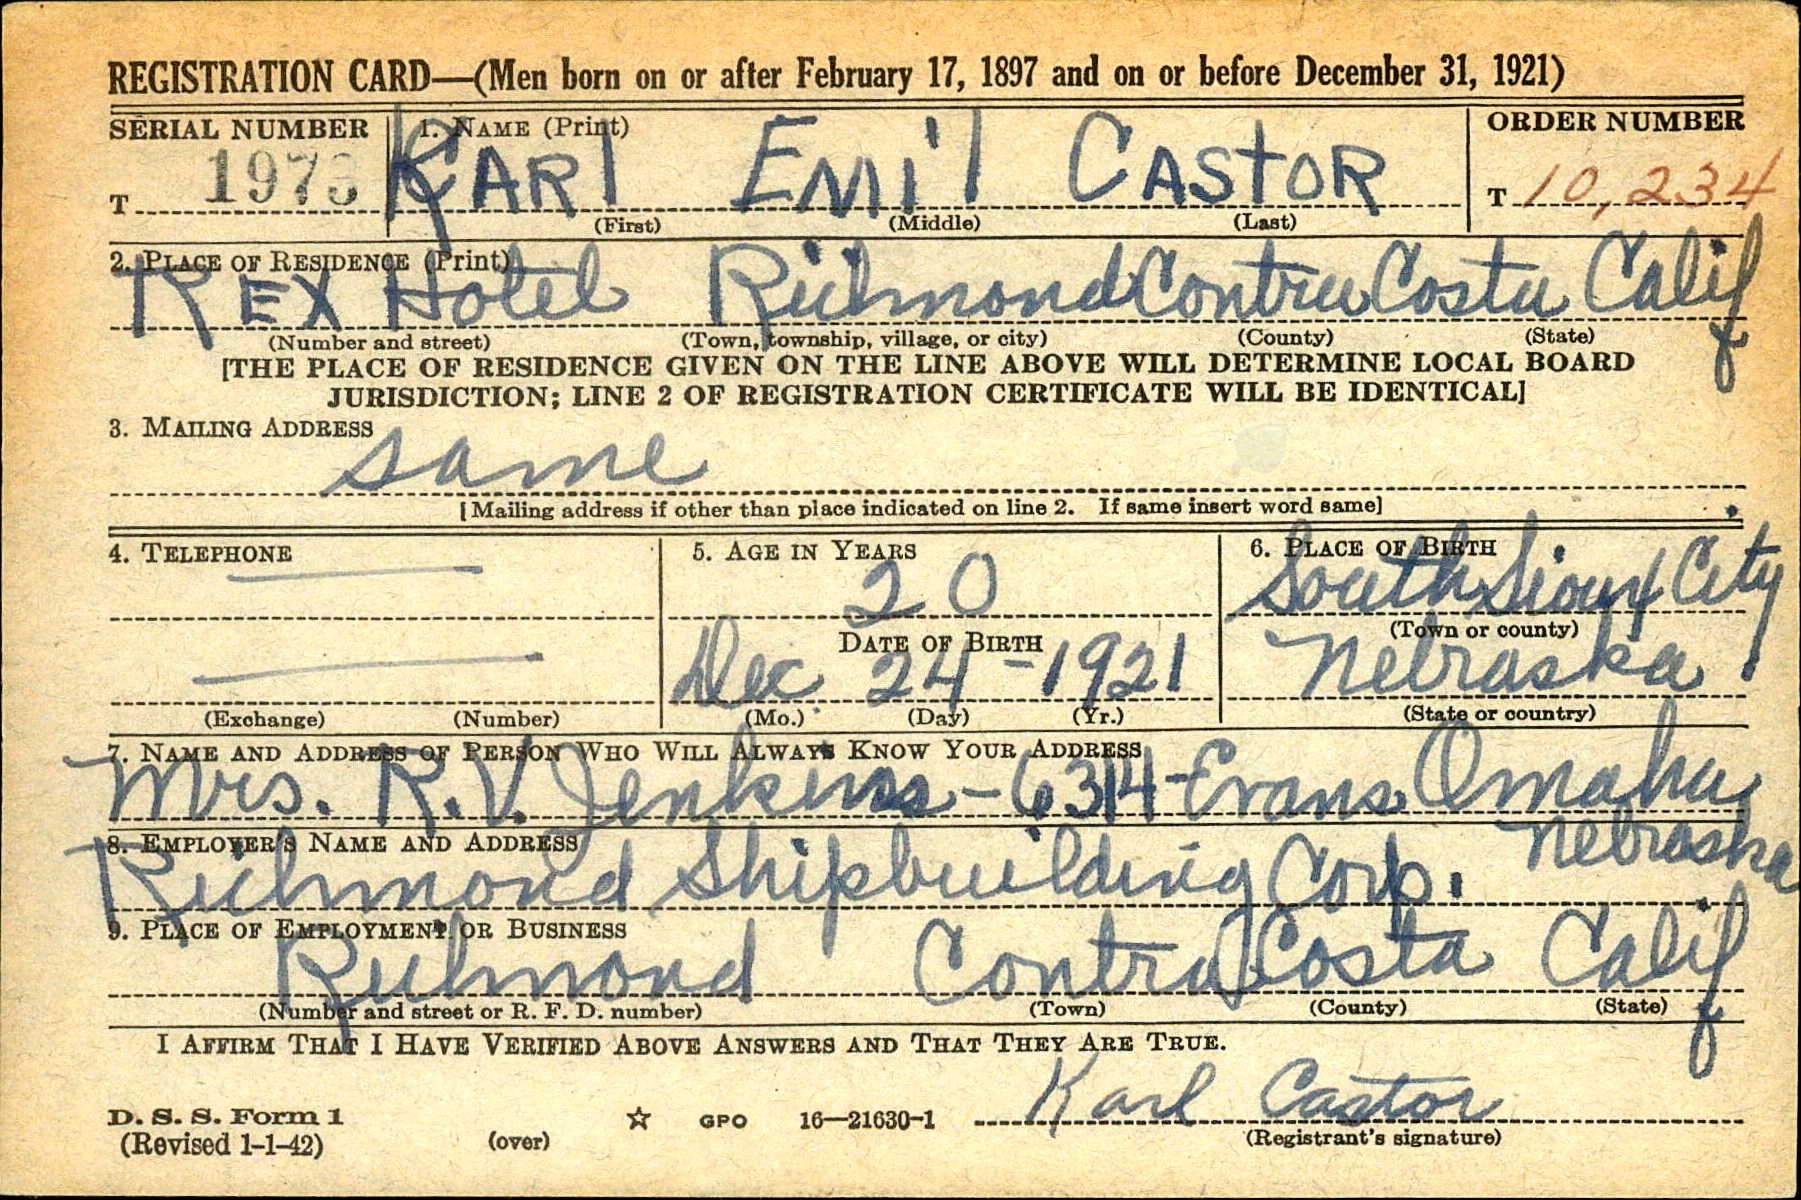 REGISTRATION CARD—(Men born on or after February 17, 1897 and on or before December 31, 1921)
SERIAL NUMBER 1. NAME (Print) ORDER NUMBER
T 1973 KARl EMi'l CASTOR T 10,234
(First) (Middle) (Last)
2. PLACE OF RESIDENCE (Print)
REX Hotel Richmond Contra Costa Calif
(Number and street) (Town, township, village, or city) (County) (State)
[THE PLACE OF RESIDENCE GIVEN ON THE LINE ABOVE WILL DETERMINE LOCAL BOARD
JURISDICTION; LINE 2 OF REGISTRATION CERTIFICATE WILL BE IDENTICAL]
3. MAILING ADDRESS
same
[Mailing address if other than place indicated on line 2. If same insert word same]
4. TELEPHONE 5. AGE IN YEARS 6. PLACE OF BIRTH
20 South Sioux City
DATE OF BIRTH (Town or county)
Dec 24-1921 Nebraska
(Exchange) (Number) (Mo.) (Day) (Yr.) (State or country)
7. NAME AND ADDRESS OF PERSON WHO WILL ALWAYS KNOW YOUR ADDRESS
Mrs. R.V. Jenkins-6314-Evans Omaha
Nebraska
8. EMPLOYER'S NAME AND ADDRESS
Richmond Shipbuilding Corp.
9. PLACE OF EMPLOYMENT OR BUSINESS
Richmond Contra Costa Calif
(Number and street or R. F. D. number) (Town) (County) (State)
I AFFIRM THAT I HAVE VERIFIED ABOVE ANSWERS AND THAT THEY ARE TRUE.
D. S. S. Form 1 ☆ GPO 16—21630-1 Karl Castor
(Revised 1-1-42) (over) (Registrant's signature)